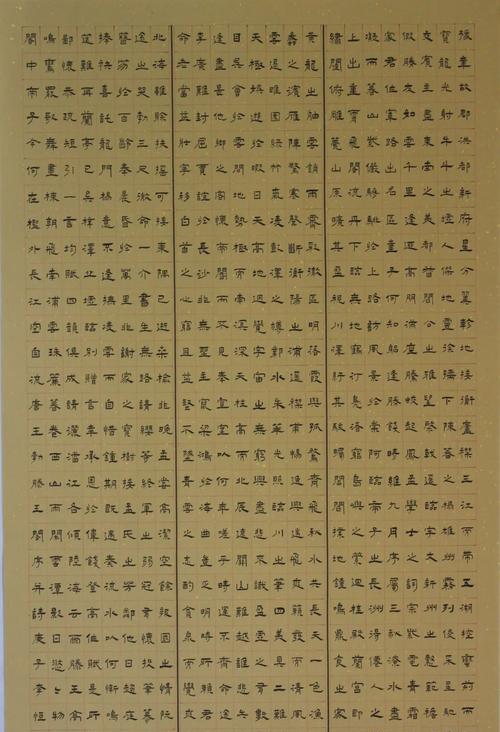 豫章故郡洪都新府星分翼軫地接衡廬襟三江而帶五湖控蠻荊而
寶龍光射牛斗之墟人傑地靈徐孺下陳蕃之榻雄州霧列俊采星馳
交賓主盡東南之美都督閻公之雅望棨戟遙臨宇文新州之懿範襜
假勝友如雲千里逢迎高朋滿座騰蛟起鳳孟學士之詞宗紫電青霜
家君作宰路出名區童子何知躬逢勝餞時維九月序屬三秋潦水盡
凝而暮山紫儼驂騑於上路訪風景於崇阿臨帝子之長洲得仙人之
上出重霄飛閣流丹下臨無地鶴汀鳧渚窮島嶼之縈迴桂殿蘭宮即
繡闥俯雕甍山原曠其盈視川澤紆其駭矚閭閻撲地鐘鳴鼎食之家
黃龍之舳雲銷雨霽彩徹區明落霞與孤鶩齊飛秋水共長天一色漁
蠡之濱雁陣驚寒聲斷衡陽之浦遙襟甫暢逸興遄飛爽籟發而清風
雲遏睢園綠竹氣凌彭澤之樽鄴水朱華光照臨川之筆四美具二難
天極娛遊於暇日天高地迥覺宇宙之無窮興盡悲來識盈虛之有數
目吳會於雲間地勢極而南溟深天柱高而北辰遠關山難越誰悲失
逢盡是他鄉之客懷帝閽而不見奉宣室以何年嗟乎時運不齊命途
李廣難封屈賈誼於長沙非無聖主竄梁鴻於海曲豈乏明時所賴君
命老當益壯寧移白首之心窮且益堅不墜青雲之志酌貪泉而覺爽
北海雖賒扶搖可接東隅已逝桑榆非晚孟嘗高潔空餘報國之情阮
途之哭勃三尺微命一介書生無路請纓等終軍之弱冠有懷投筆慕
簪笏於百齡奉晨昏於萬里非謝家之寶樹接孟氏之芳鄰他日趨庭
捧袂喜託龍門楊意不逢撫凌雲而自惜鍾期既遇奏流水以何慚嗚
筵難再蘭亭已矣梓澤丘墟臨別贈言幸承恩於偉餞登高作賦是所
鄙懷恭疏短引一言均賦四韻俱成請灑潘江各傾陸海云爾滕王高
鳴鸞罷歌舞畫棟朝飛南浦雲珠簾暮捲西山雨閒雲潭影日悠悠物
閣中帝子今何在檻外長江空自流唐王勃滕王閣序并詩庚子李恒